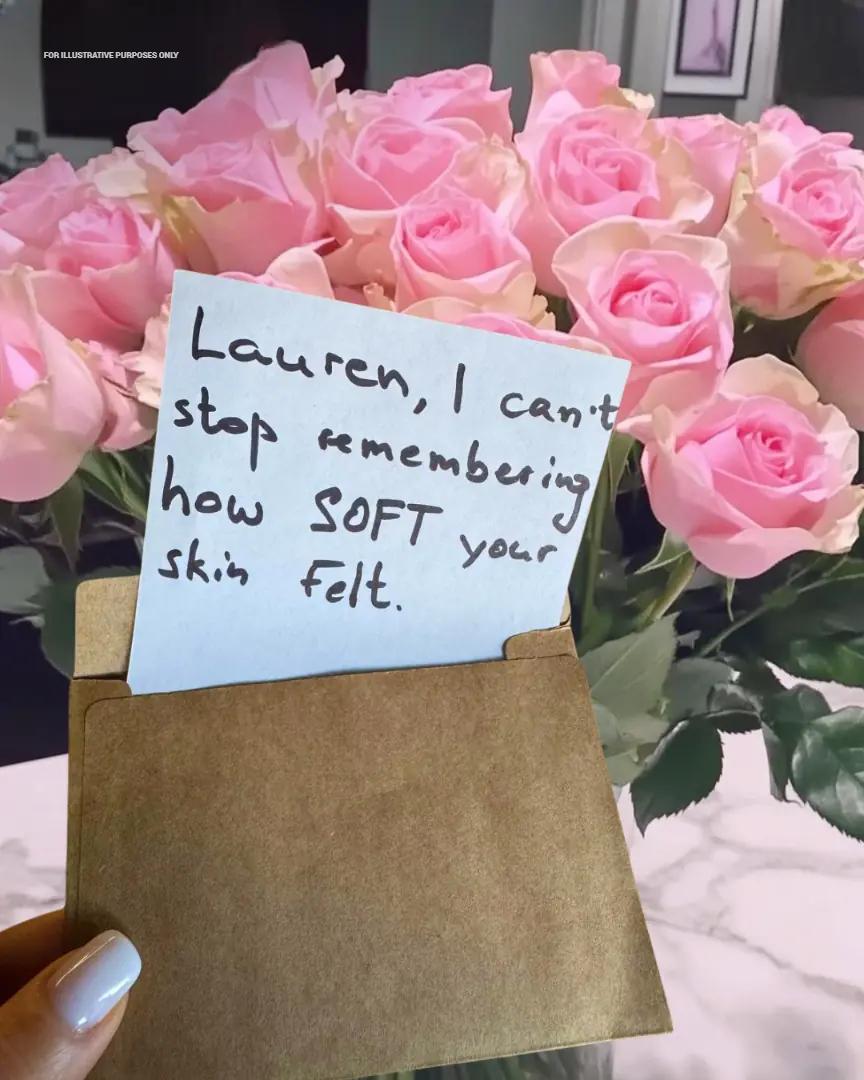 FOR ILLUSTRATIVE PURPOSES ONLY
Lauren, I can't
stop remembering
how SOFT your
skin felt.